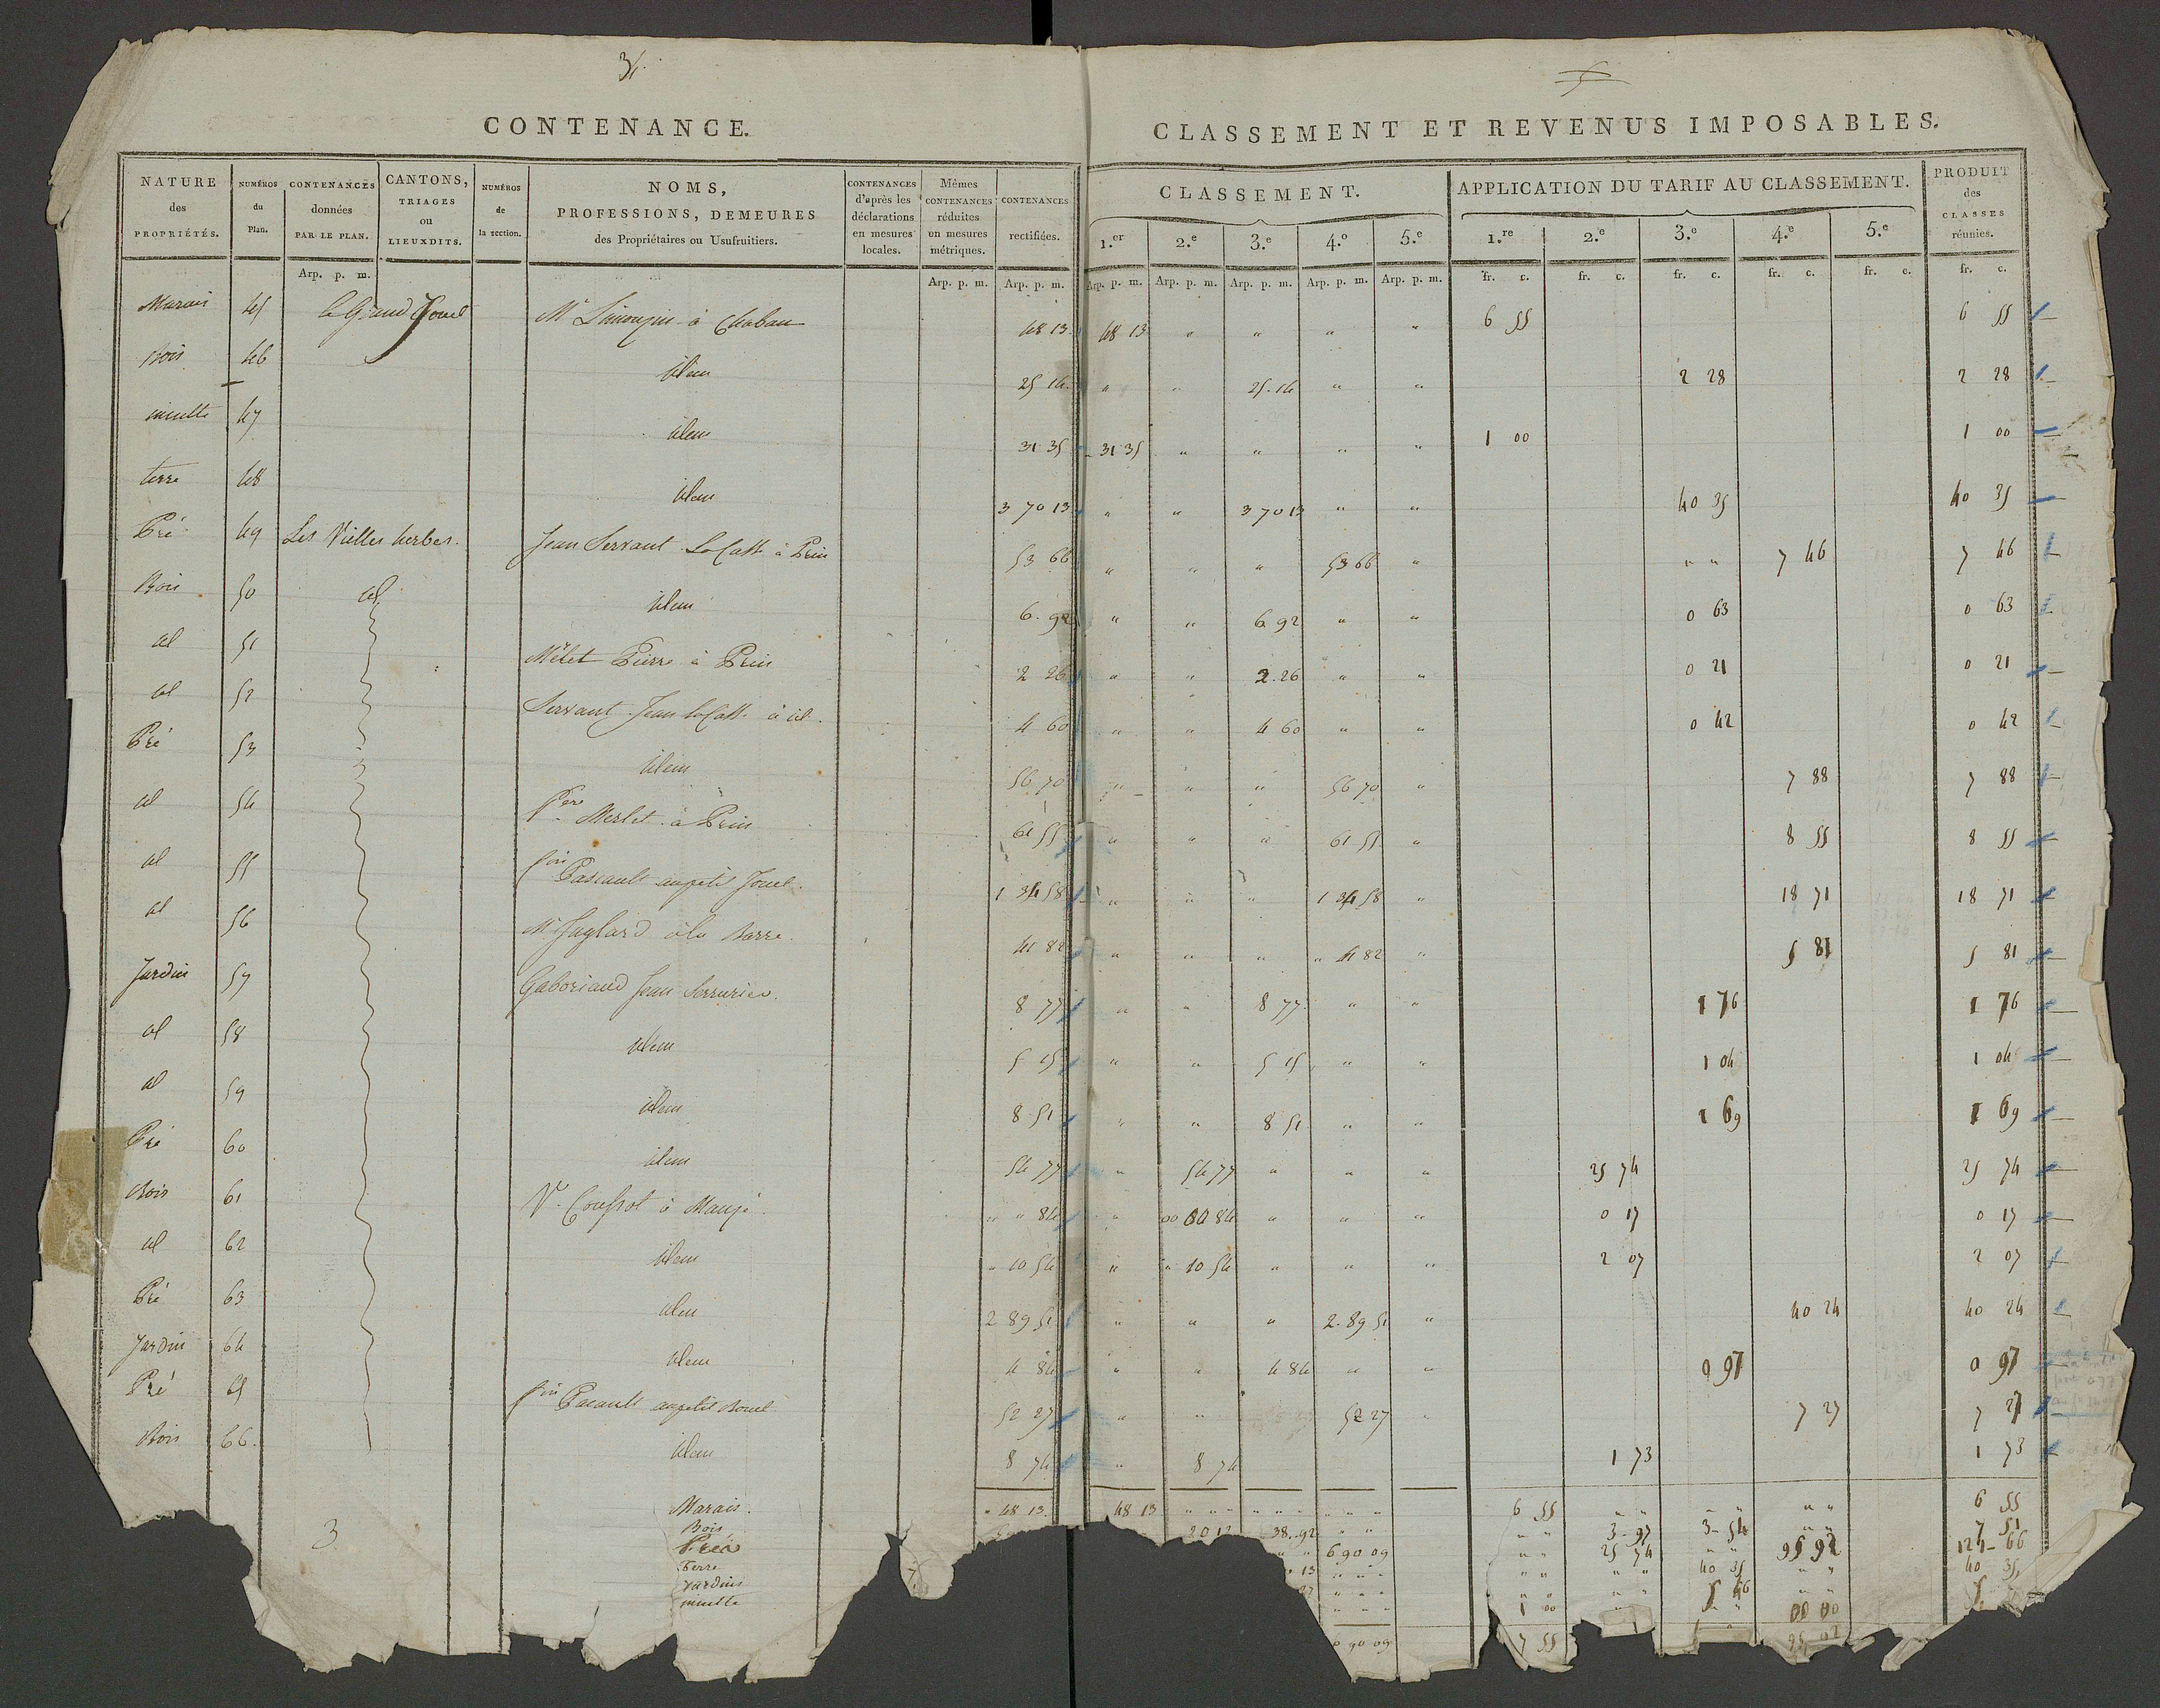 CONTENANCE.
NATURE des PROPRIÉTÉS.
NUMÉROS du Plan.
CONTENANCES données PAR LE PLAN.
CANTONS, TRIAGES ou LIEUXDITS.
NUMÉROS de la section.
NOMS, PROFESSIONS, DEMEURES des Propriétaires ou Usufruitiers.
CONTENANCES d'après les déclarations en mesures locales.
Mêmes CONTENANCES réduites en mesures métriques.
CONTENANCES rectifiées.
Arp. p. m. Arp. p. m. Arp. p. m.
CLASSEMENT ET REVENUS IMPOSABLES.
CLASSEMENT.
1.er 2.e 3.e 4.e 5.e
Arp. p. m. Arp. p. m. Arp. p. m. Arp. p. m. Arp. p. m.
APPLICATION DU TARIF AU CLASSEMENT.
1.re 2.e 3.e 4.e 5.e
fr. c. fr. c. fr. c. fr. c. fr. c.
PRODUIT des CLASSES réunies.
fr. c.
Marais 45 le Grand 48 13 48 13 " " " " 6 55 6 55
Bois 46 idem 25 14 " " 25.14 " " 2 28 2 28
inculte 47 idem 31 35 31 35 " " " " 1 00 1 00
terre 48 idem 3 70 13 " " 3 70 13 " " 40 35 40 35
Pré 49 Les Vielles herbes. Jean Servant à Prin 53 66 " " " 53 66 " " " 7 46 7 46
Bois 50 id idem 6.92 " " 6 92 " " 0 63 0 63
id 51 Mêlet Pierre à Prin 2 26 " " 2.26 " " 0 21 0 21
id 52 Servant Jean à id. 4 60 " " 4 60 " " 0 42 0 42
Pré 53 idem 56 70 " " " 56 70 " 7 88 7 88
id 54 Pere Merlet à Prin 61 55 " " " 61 55 " 8 55 8 55
id 55 Pascault au petit 1 34 58 " " " 1 34 58 " 18 71 18 71
id 56 à la Barre. 41 82 " " " " 41 82 " 5 81 5 81
Jardin 57 Gaboriaud Jean Serrurier. 8 77 " " 8 77 " " 1 76 1 76
id 58 idem 5 15 " " 5 15 " " 1 04 1 04
id 59 idem 8.51 " " 8 51 " " 1 69 1 69
Pré 60 idem 54 77 " 54 77 " " " 25 74 25 74
Bois 61 Ve à Mauzé. " " 84 " 00 00 84 " " " 0 17 0 17
id 62 idem " 10 54 " " 10 54 " " " 2 07 2 07
Pré 63 idem 2 89 51 " " " 2.89 51 " 40 24 40 24
Jardin 64 idem 4 84 " " 4 84 " " 0 97 0 97
Pré 65 Pacault au petit 52 27 " " 52 27 " 7 27 7 27
Bois 66. idem 8 74 " 8 74 1 73 1 73
Marais. " 48 13. 48 13 " " " " " " " " " 6 55 " " " " " " 6 55
Bois 20 12 38.92 " " " " 3-97 3-54 " " 7 51
Prés " " 6 90 09 " " 25 74 " " 95 92 121-66
Terre 13 " " " " " " " 40 35 " " 40 35
Jardins " " " " " " " 5 46 " "
inculte " " " 1 00 " " " 00 00
90 09 7 55
3